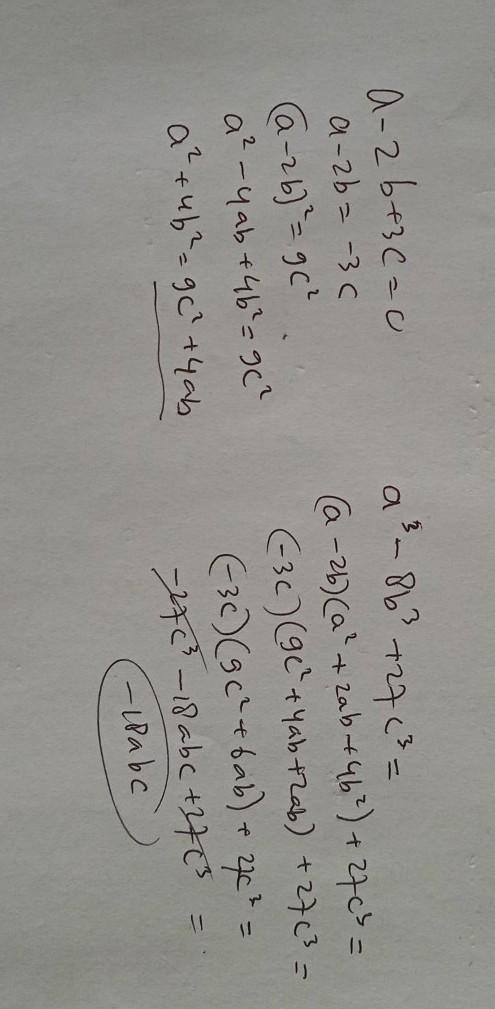 a-2b+3c=0
a-2b= -3c
(a-2b)²=9c²
a²-4ab+4b²=9c²
a²+4b²=9c²+4ab
a³-8b³+27c³=
(a-2b)(a²+2ab+4b²)+27c³=
(-3c)(9c²+4ab+2ab)+27c³=
(-3c)(9c²+6ab)+27c³=
-27c³-18abc+27c³=
-18abc